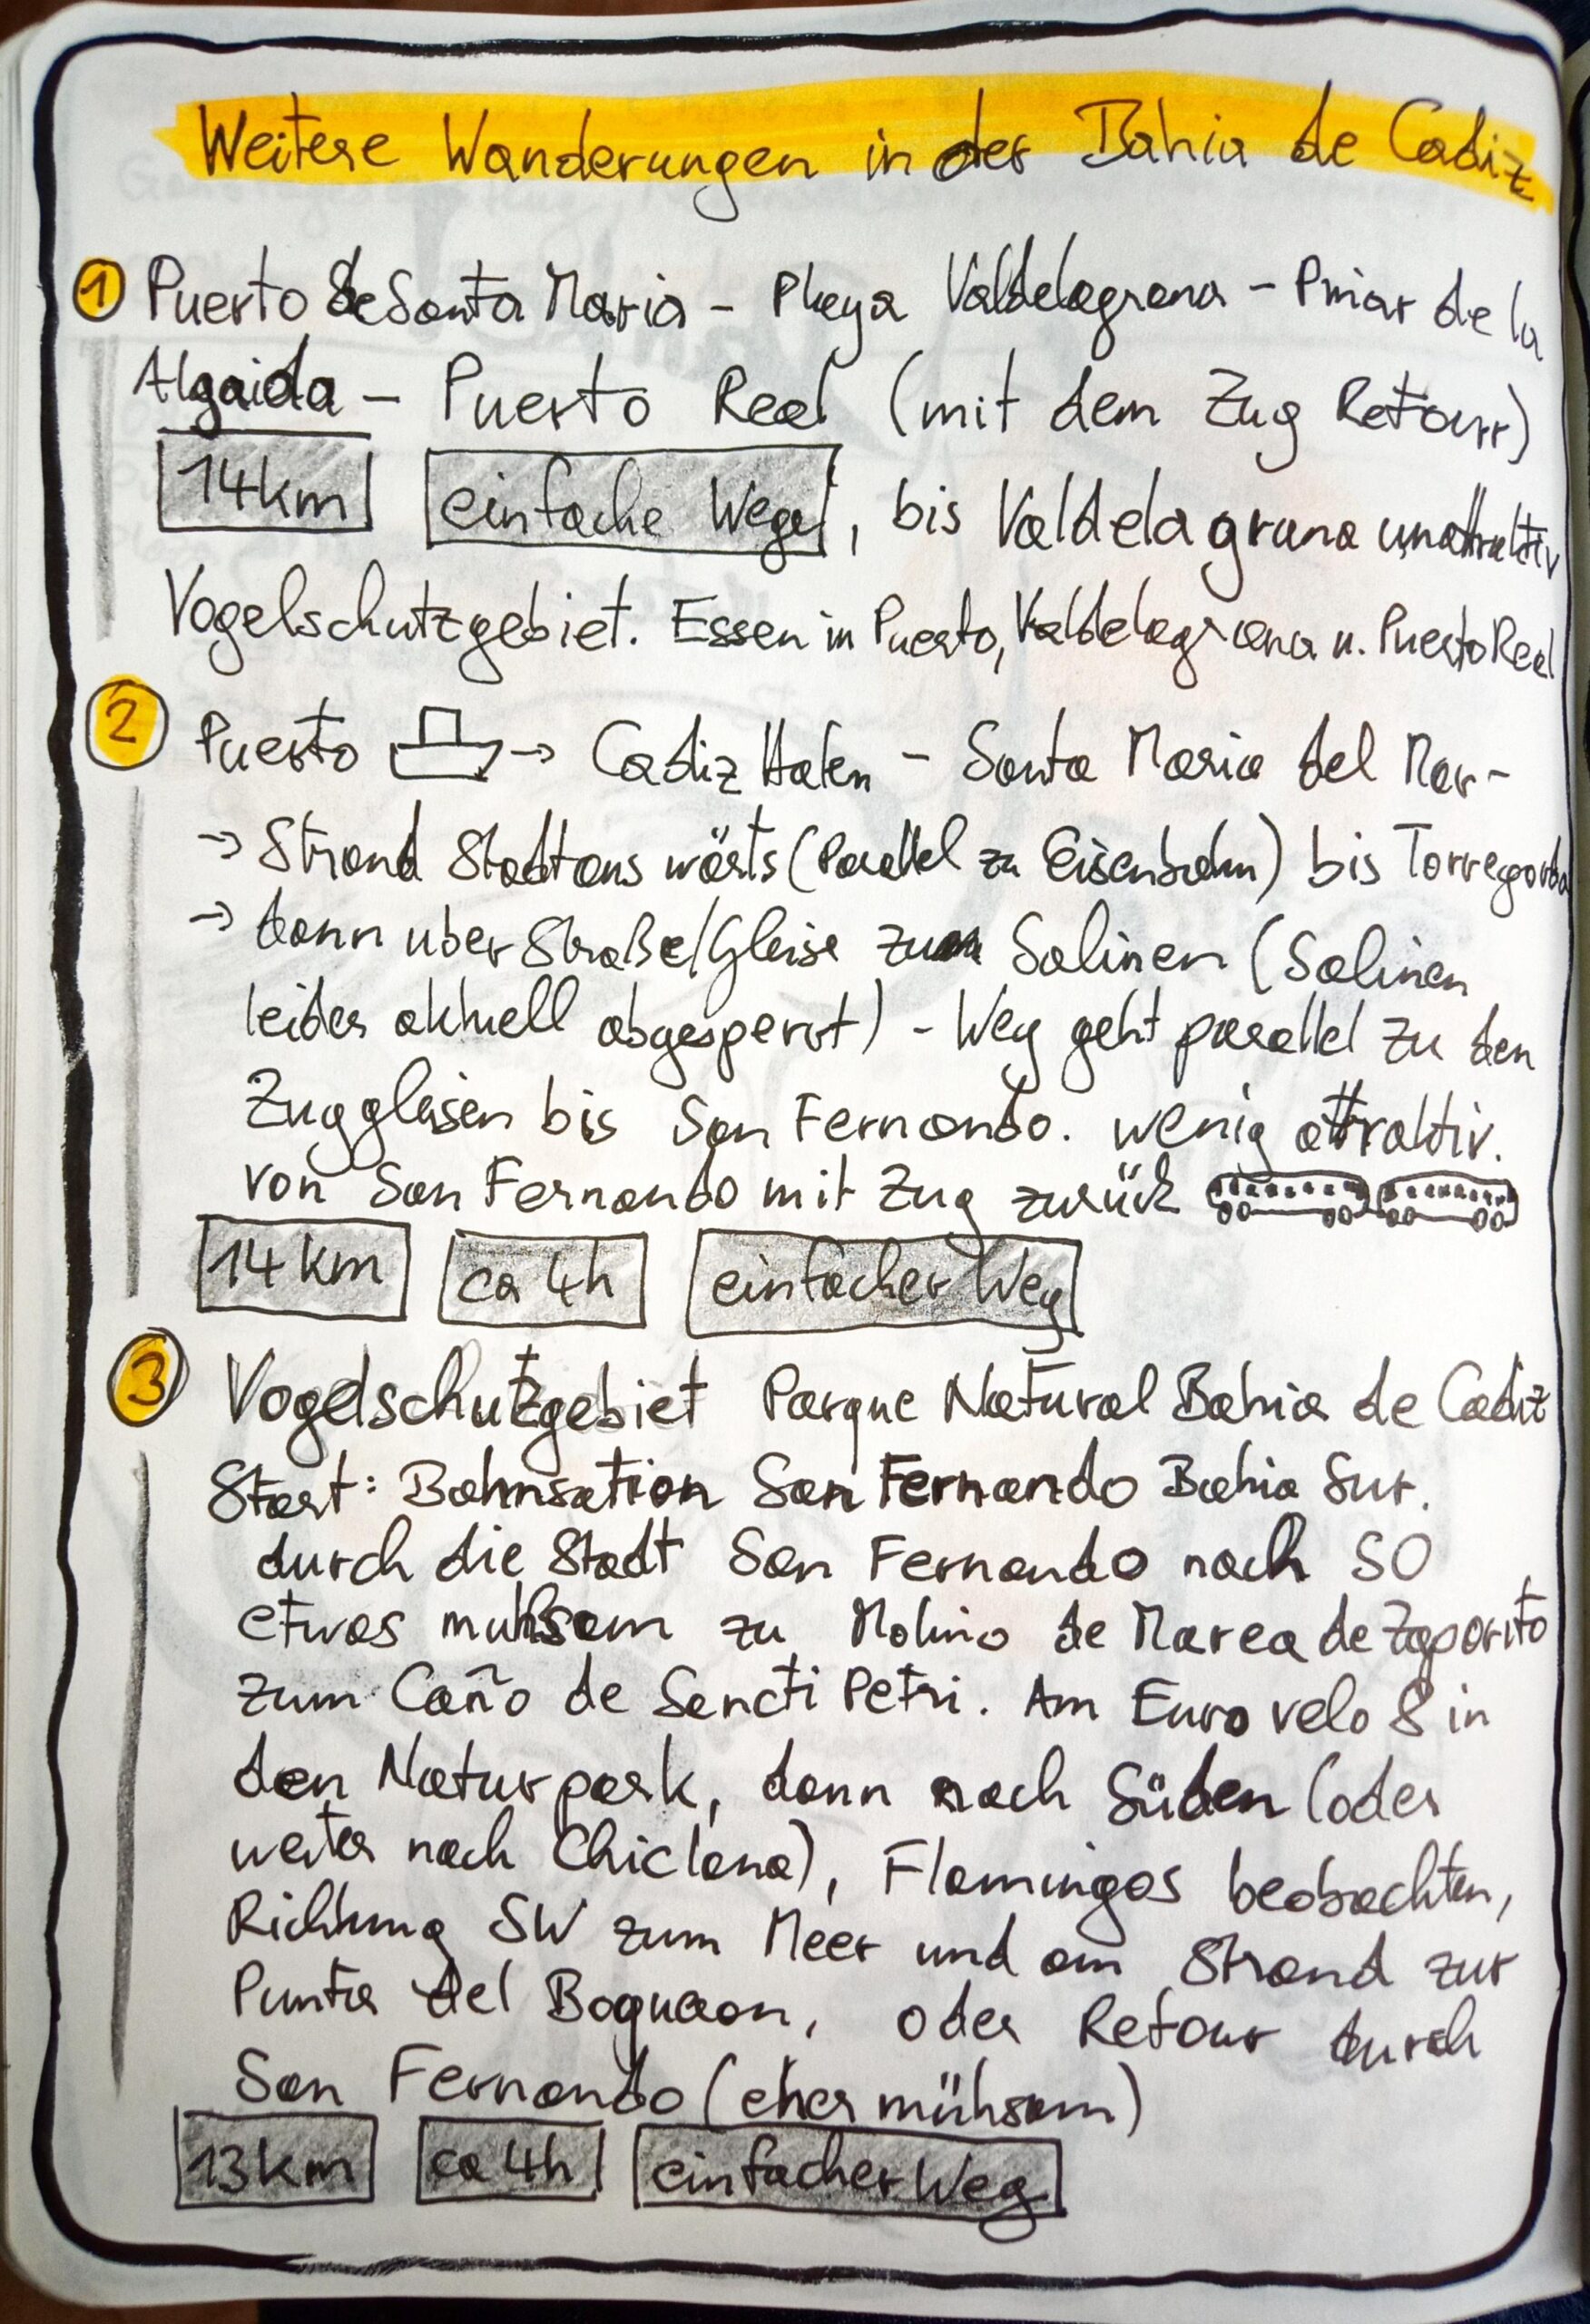 Weitere Wanderungen in der Bahia de Cadiz
1 Puerto de Santa Maria - Playa Valdelagrana - Pinar de la
Algaida - Puerto Real (mit dem Zug Retour)
14km einfache Wege, bis Valdelagrana unattraktiv
Vogelschutzgebiet. Essen in Puerto, Valdelagrana u. Puerto Real
2 Puerto → Cadiz Hafen - Santa Maria del Mar-
→ Strand Stadtauswärts (Parallel zu Eisenbahn) bis Torregorda
→ dann uber Straße/Gleise zu Salinen (Salinen
leider aktuell abgesperrt) - Weg geht parallel zu den
Zuggleisen bis San Fernando. wenig attraktiv.
von San Fernando mit Zug zurück
14 km ca 4h einfacher Weg
3 Vogelschutzgebiet Parque Natural Bahia de Cadiz
Start: Bahnsation San Fernando Bahia Sur.
durch die Stadt San Fernando nach SO
etwas muhsam zu Molino de Marea de Zaporito
zum Caño de Sancti Petri. Am Euro velo 8 in
den Naturpark, dann nach Süden (oder
weiter nach Chiclana), Flamingos beobachten,
Richtung SW zum Meer und am Strand zur
Punta del Boqueron, oder Retour durch
San Fernando (eher mühsam)
13km ca 4h einfacher Weg